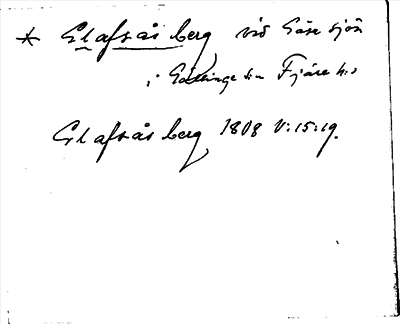 * Elafsås berg vid Gåse sjön
i Gällinge sn Fjäre hd
Elafsås berg 1808 V:15:19.